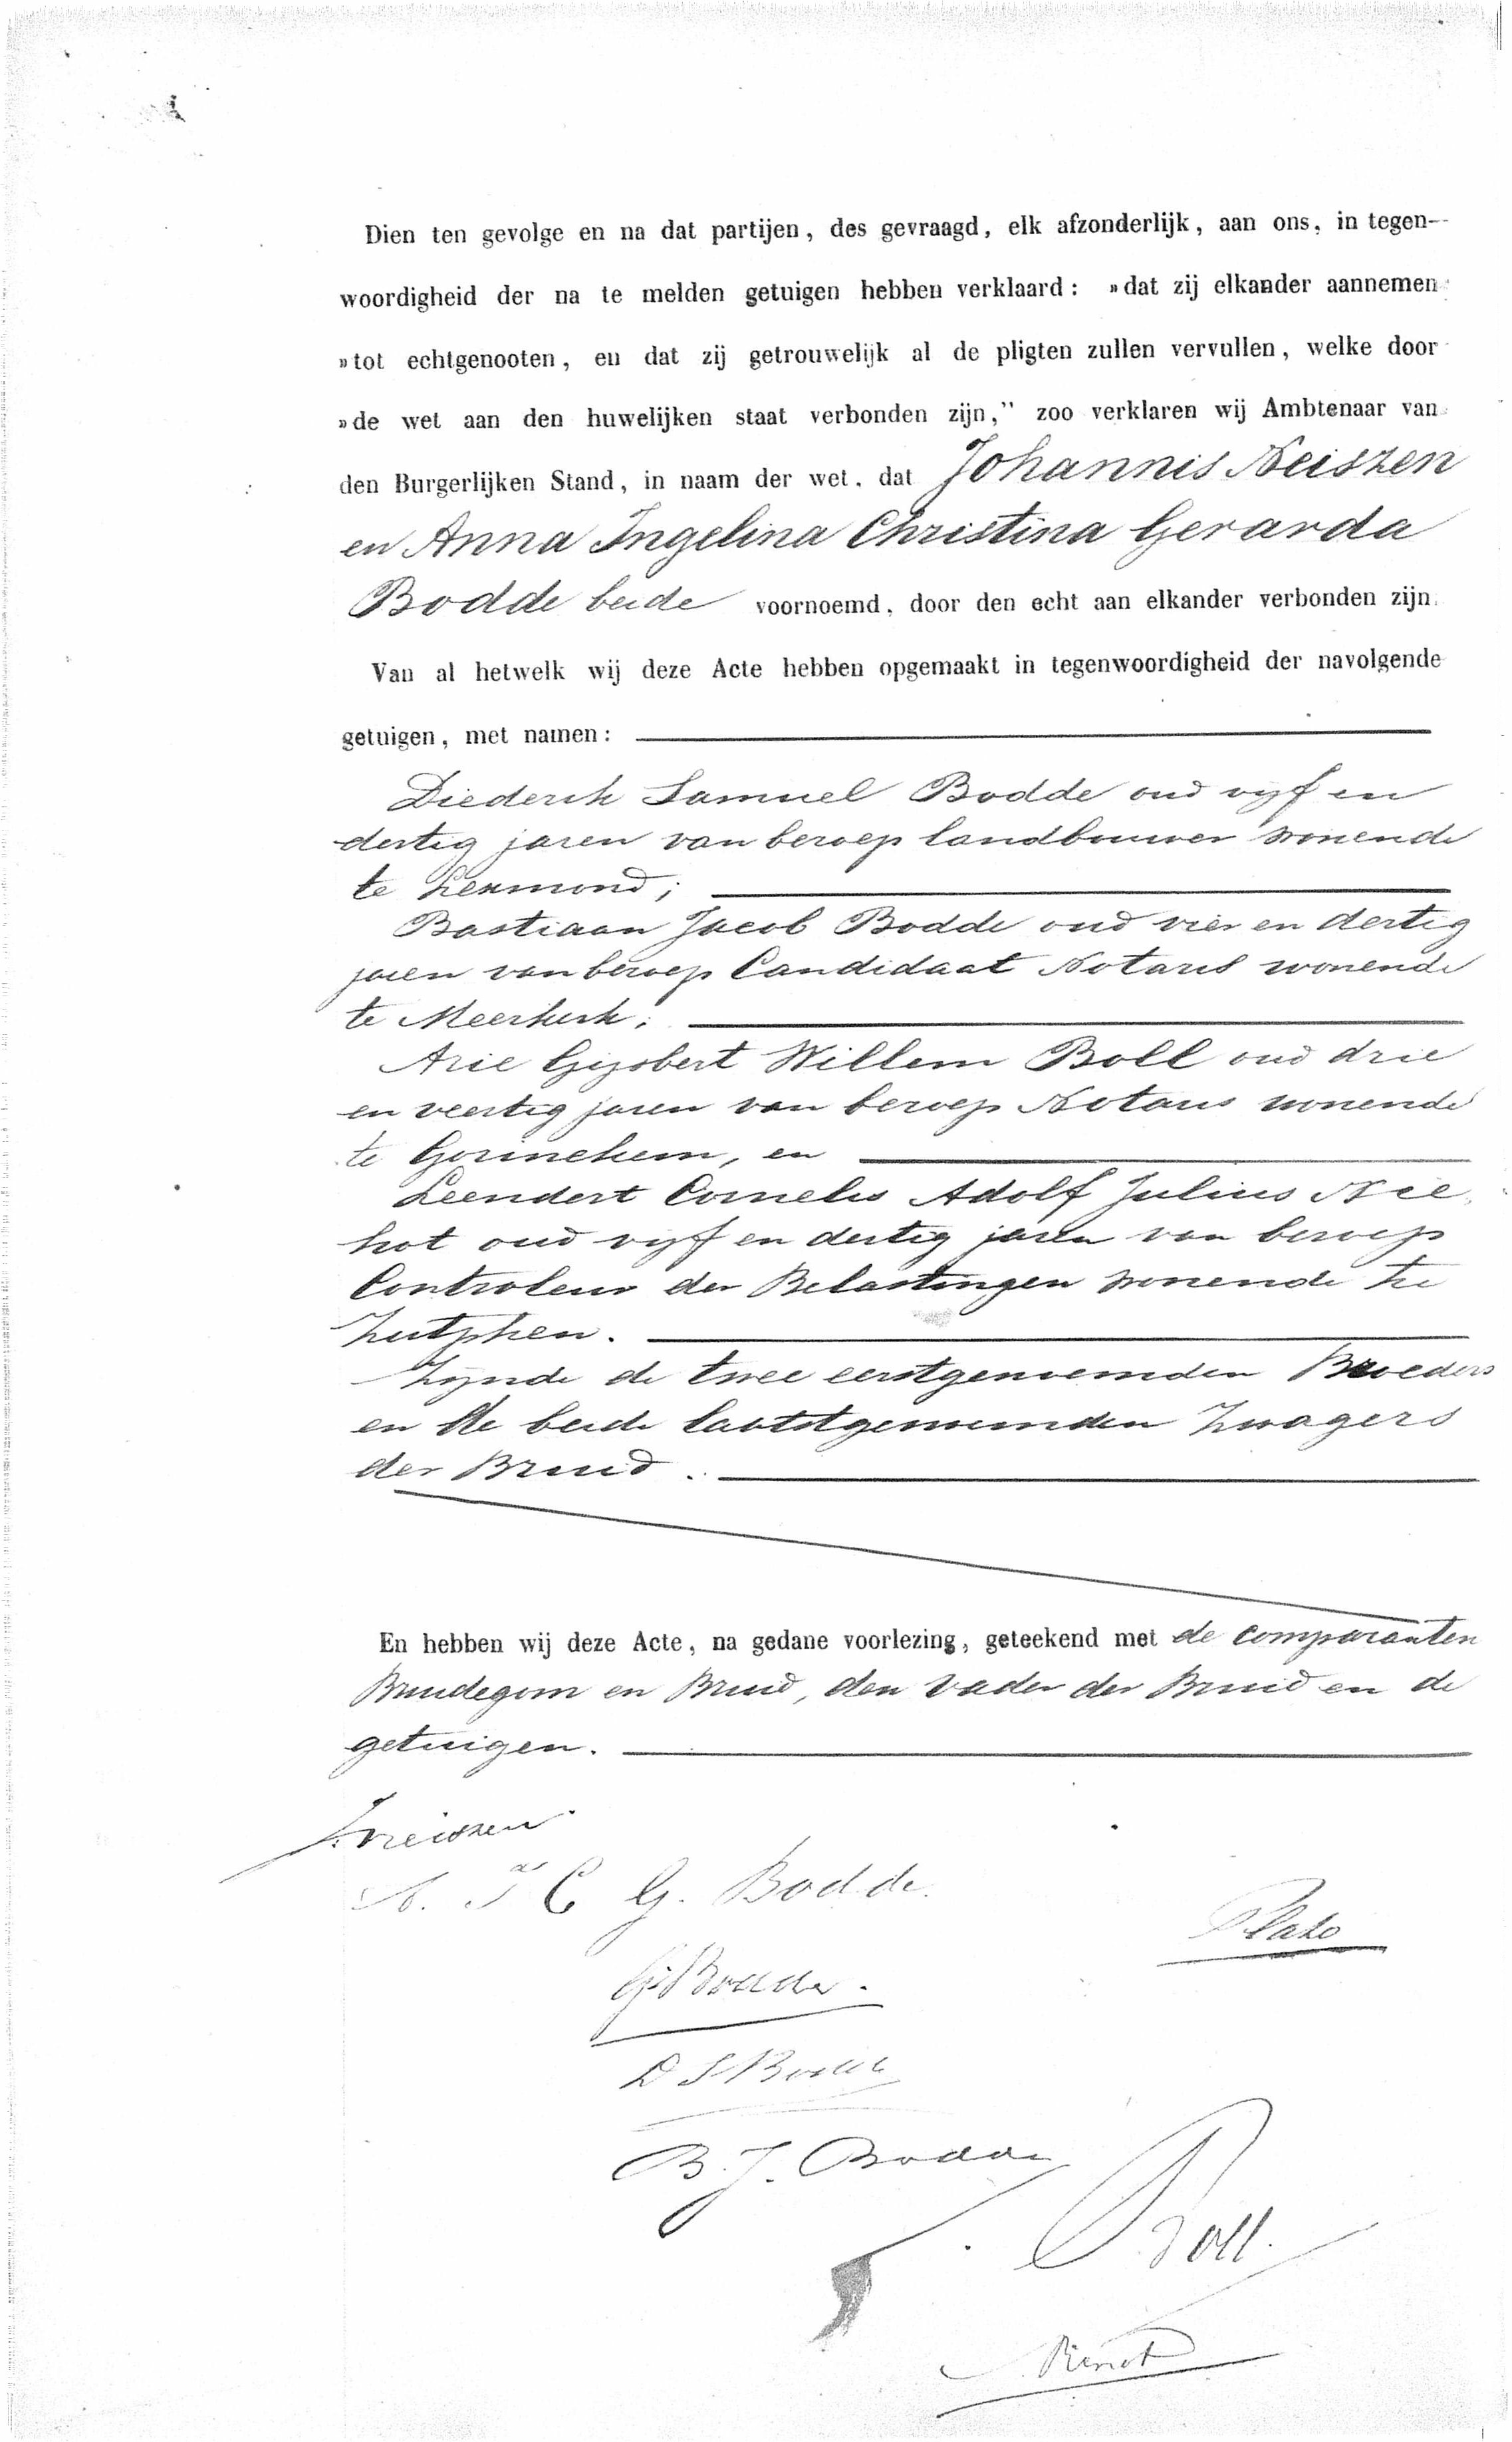 Dien ten gevolge en na dat partijen, des gevraagd, elk afzonderlijk, aan ons, in tegen-
woordigheid der na te melden getuigen hebben verklaard: »dat zij elkander aannemen
»tot echtgenooten, en dat zij getrouwelijk al de pligten zullen vervullen, welke door
»de wet aan den huwelijken staat verbonden zijn," zoo verklaren wij Ambtenaar van
den Burgerlijken Stand, in naam der wet, dat Johannis Neiszen
en Anna Ingelina Christina Gerarda
Bodde beide voornoemd, door den echt aan elkander verbonden zijn.
Van al hetwelk wij deze Acte hebben opgemaakt in tegenwoordigheid der navolgende
getuigen, met namen:
Diederik Samuel Bodde oud vijf en
dertig jaren van beroep landbouwer wonende
te Lexmond;
Bastiaan Jacob Bodde oud vier en dertig
jaren van beroep Candidaat Notaris wonende
te Meerkerk;
Arie Gijsbert Willem Boll oud drie
en veertig jaren van beroep Notaris wonende
te Gorinchem, en
Leendert Cornelis Adolf Julius
oud vijf en dertig jaren van beroep
Controleur der Belastingen wonende te
Zutphen.
Zijnde de twee eerstgenoemden Broeders
en de beide laatstgenoemden Zwagers
der Bruid.
En hebben wij deze Acte, na gedane voorlezing, geteekend met de comparanten
Bruidegom en Bruid, den vader der Bruid en de
getuigen.
J. Neiszen
A. I C G. Bodde.
Plato
G Bodde.
D S Bodde
B. J. Bodde
Boll.